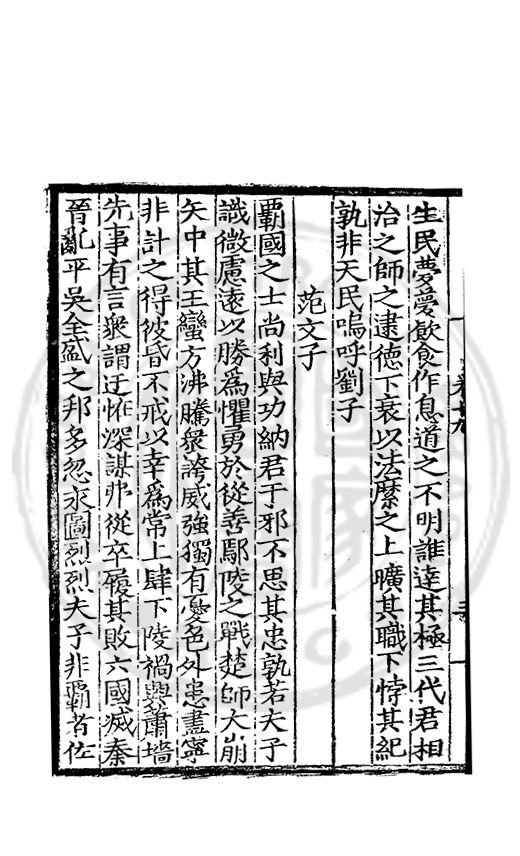 生民夢夢飲食作息道之不明誰達其極三代君相
治之師之逮德下衰以法縻之上曠其職下悖其紀
孰非天民嗚呼劉子
范文子
覇國之士尚利與功納君于邪不思其忠孰若夫子
識微慮遠以勝爲懼勇於從善鄢陵之戰楚師大崩
矢中其王蠻方沸騰衆誇威強獨有憂色外患盡寧
非計之得彼昏不戒以幸爲常上肆下陵禍興蕭墻
先事有言衆謂迂怪深謀弗從卒履其敗六國滅秦
晉亂平吳全盛之邦多忽永圖烈烈夫子非覇者佐
卷十九